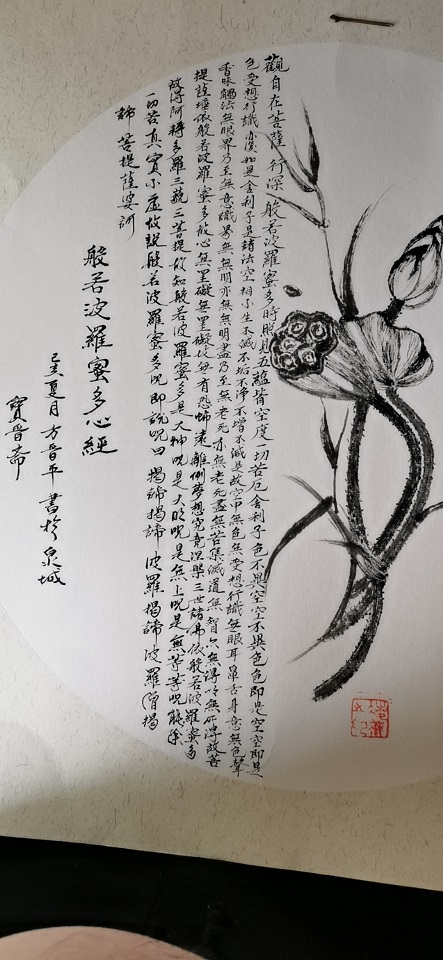 觀自在菩薩行深般若波羅蜜多時照見五蘊皆空度一切苦厄舍利子色不異空空不異色色即是空空即是
色受想行識亦復如是舍利子是諸法空相不生不滅不垢不淨不增不減是故空中無色無受想行識無眼耳鼻舌身意無色聲
香味觸法無眼界乃至無意識界無無明亦無無明盡乃至無老死亦無老死盡無苦集滅道無智亦無得以無所得故菩
提薩埵依般若波羅蜜多故心無罣礙無罣礙故無有恐怖遠離顛倒夢想究竟涅槃三世諸佛依般若波羅蜜多
故得阿耨多羅三藐三菩提故知般若波羅蜜多是大神咒是大明咒是無上咒是無等等咒能除
一切苦真實不虛故說般若波羅蜜多咒即說咒曰 揭諦揭諦 波羅揭諦 波羅僧揭
諦 菩提薩婆訶
般若波羅蜜多心經
己亥夏月方晉平書於泉城
寶晉齋